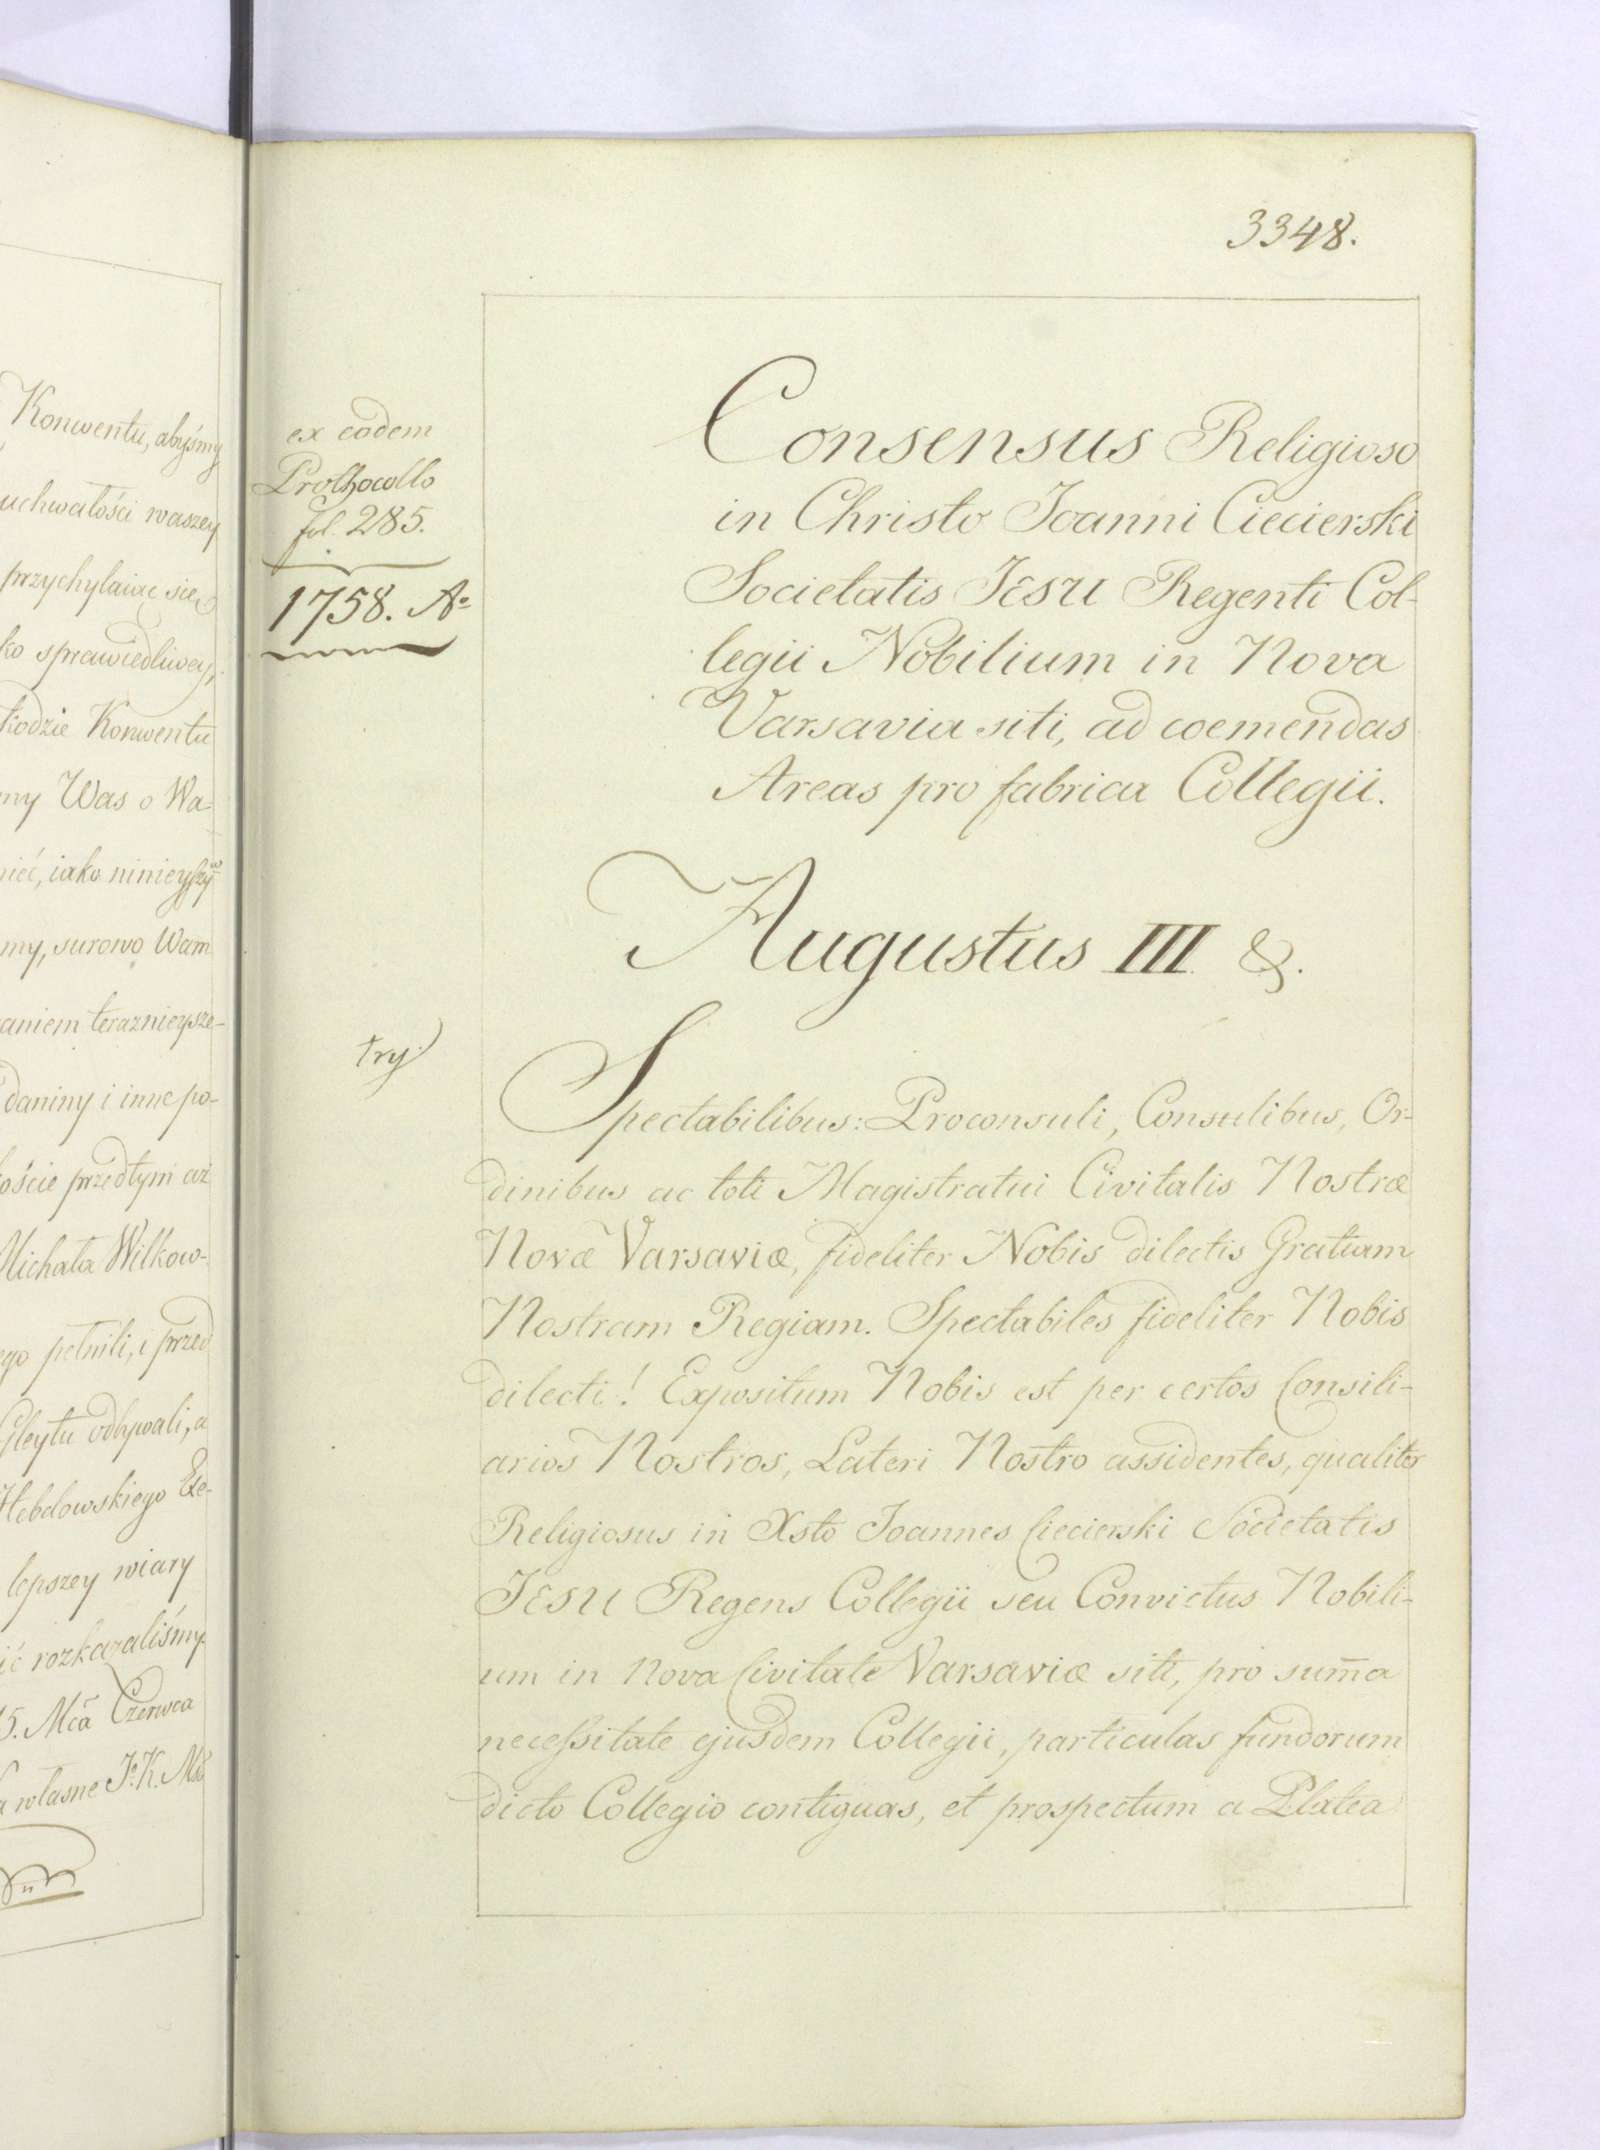 Konwentu, abyśmy
uchwałości waszey
przychylaiąc się
ko sprawiedliwey,
kodzie Konwentu
my Was o Wa-
nieć, iako ninieyszym
my, surowo Wam
aniem teraznieysze-
daniny i inne po-
koście przedtym az
Michała Wilkow-
ego pełnili, i przed
Gleytu odbywali, a
Hebdowskiego Exe-
lepszey wiary
ić rozkazaliśmy
15. Mcā Czerwca
własne J. K. Mći
3348.
ex eodem
Prothocollo
fol. 285.
1758. Ao
Consensus Religioso
in Christo Joanni Ciecierski
Societatis JESU Regenti Col-
legii Nobilium in Nova
Varsavia siti, ad coemendas
Areas pro fabrica Collegii.
Augustus III &.
try
Spectabilibus: Proconsuli, Consulibus, Or-
dinibus ac toti Magistratui Civitatis Nostræ
Novæ Varsaviæ, fideliter Nobis dilectis Gratiam
Nostram Regiam. Spectabiles fideliter Nobis
dilecti! Expositum Nobis est per certos Consili-
arios Nostros, Lateri Nostro assidentes, qualiter
Religiosus in Xsto Joannes Ciecierski Societatis
JESU Regens Collegii seu Convictus Nobili-
um in Nova Civitate Varsaviæ siti, pro sum̄a
necessitate ejusdem Collegii, particulas fundorum
dicto Collegio contiguas, et prospectum a Platea